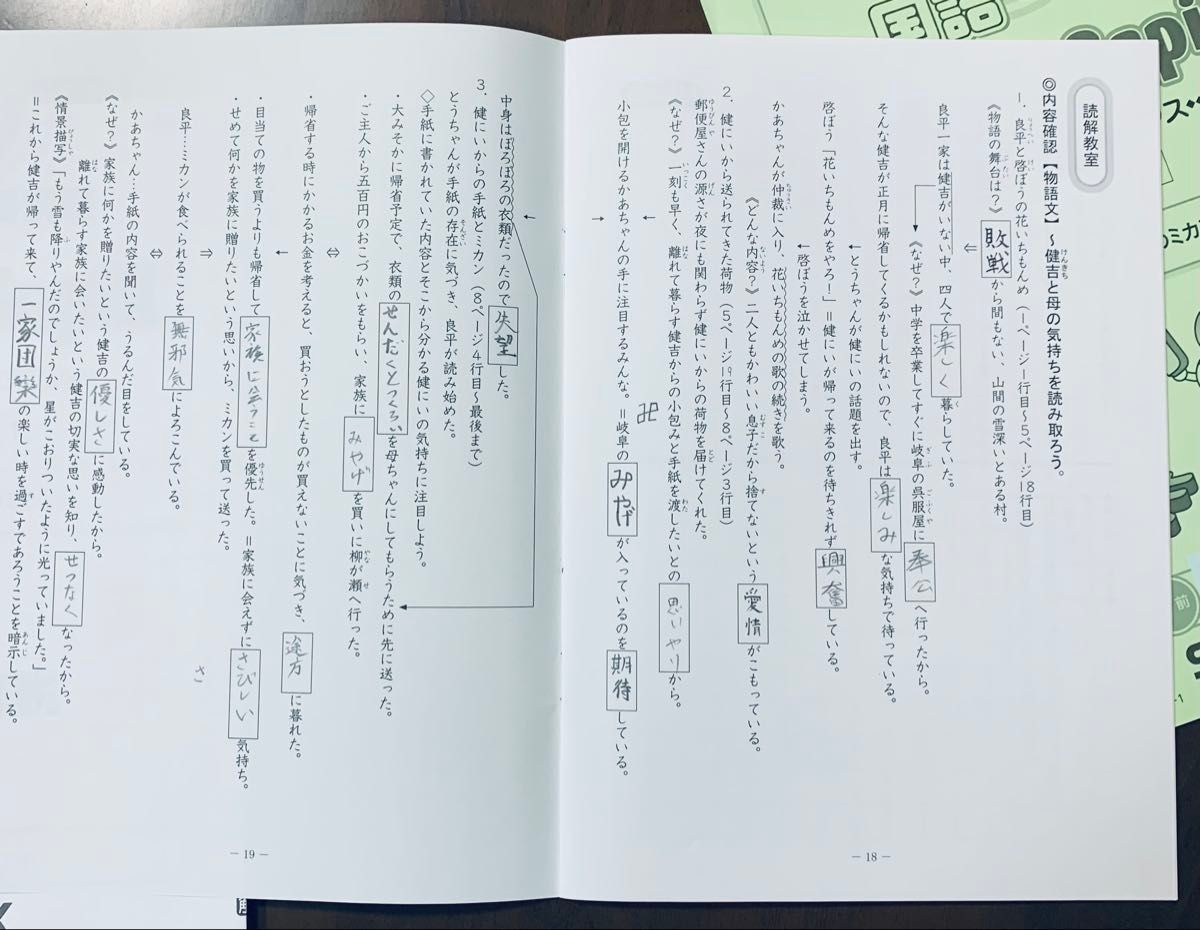 読解教室
◎内容確認【物語文】~健吉と母の気持ちを読み取ろう。
1.良平と啓ぼうの花いちもんめ(1ページ1行目~5ページ18行目)
《物語の舞台は?》敗戦から間もない、山間の雪深いとある村。
⇐
良平一家は健吉がいない中、四人で楽しく暮らしていた。
《なぜ?》中学を卒業してすぐに岐阜の呉服屋に奉公へ行ったから。
そんな健吉が正月に帰省してくるかもしれないので、良平は楽しみな気持ちで待っている。
←とうちゃんが健にいの話題を出す。
啓ぼう「花いちもんめをやろ!」=健にいが帰って来るのを待ちきれず興奮している。
←啓ぼうを泣かせてしまう。
かあちゃんが仲裁に入り、花いちもんめの歌の続きを歌う。
《どんな内容?》二人ともかわいい息子だから捨てないという愛情がこもっている。
2.健にいから送られてきた荷物(5ページ19行目~8ページ3行目)
郵便屋さんの源さが夜にも関わらず健にいからの荷物を届けてくれた。
《なぜ?》一刻も早く、離れて暮らす健吉からの小包みと手紙を渡したいとの思いやりから。
←
小包を開けるかあちゃんの手に注目するみんな。=岐阜のみやげが入っているのを期待している。
→
←
中身はぼろぼろの衣類だったので失望した。
3.健にいからの手紙とミカン(8ページ4行目~最後まで)
とうちゃんが手紙の存在に気づき、良平が読み始めた。
◇手紙に書かれていた内容とそこから分かる健にいの気持ちに注目しよう。
・大みそかに帰省予定で、衣類のせんだくとつくろいを母ちゃんにしてもらうために先に送った。
・ご主人から五百円のおこづかいをもらい、家族にみやげを買いに柳が瀬へ行った。
⇔
・帰省する時にかかるお金を考えると、買おうとしたものが買えないことに気づき、途方に暮れた。
←
・目当ての物を買うよりも帰省して家族に会うことを優先した。=家族に会えずにさびしい気持ち。
・せめて何かを家族に贈りたいという思いから、ミカンを買って送った。
さ
⇒
良平…ミカンが食べられることを無邪気によろこんでいる。
⇔
かあちゃん…手紙の内容を聞いて、うるんだ目をしている。
《なぜ?》家族に何かを贈りたいという健吉の優しさに感動したから。
離れて暮らす家族に会いたいという健吉の切実な思いを知り、せつなくなったから。
《情景描写》「もう雪も降りやんだのでしょうか、星がこおりついたように光っていました。」
=これから健吉が帰って来て、一家団欒の楽しい時を過ごすであろうことを暗示している。
— 18 —
— 19 —
国語